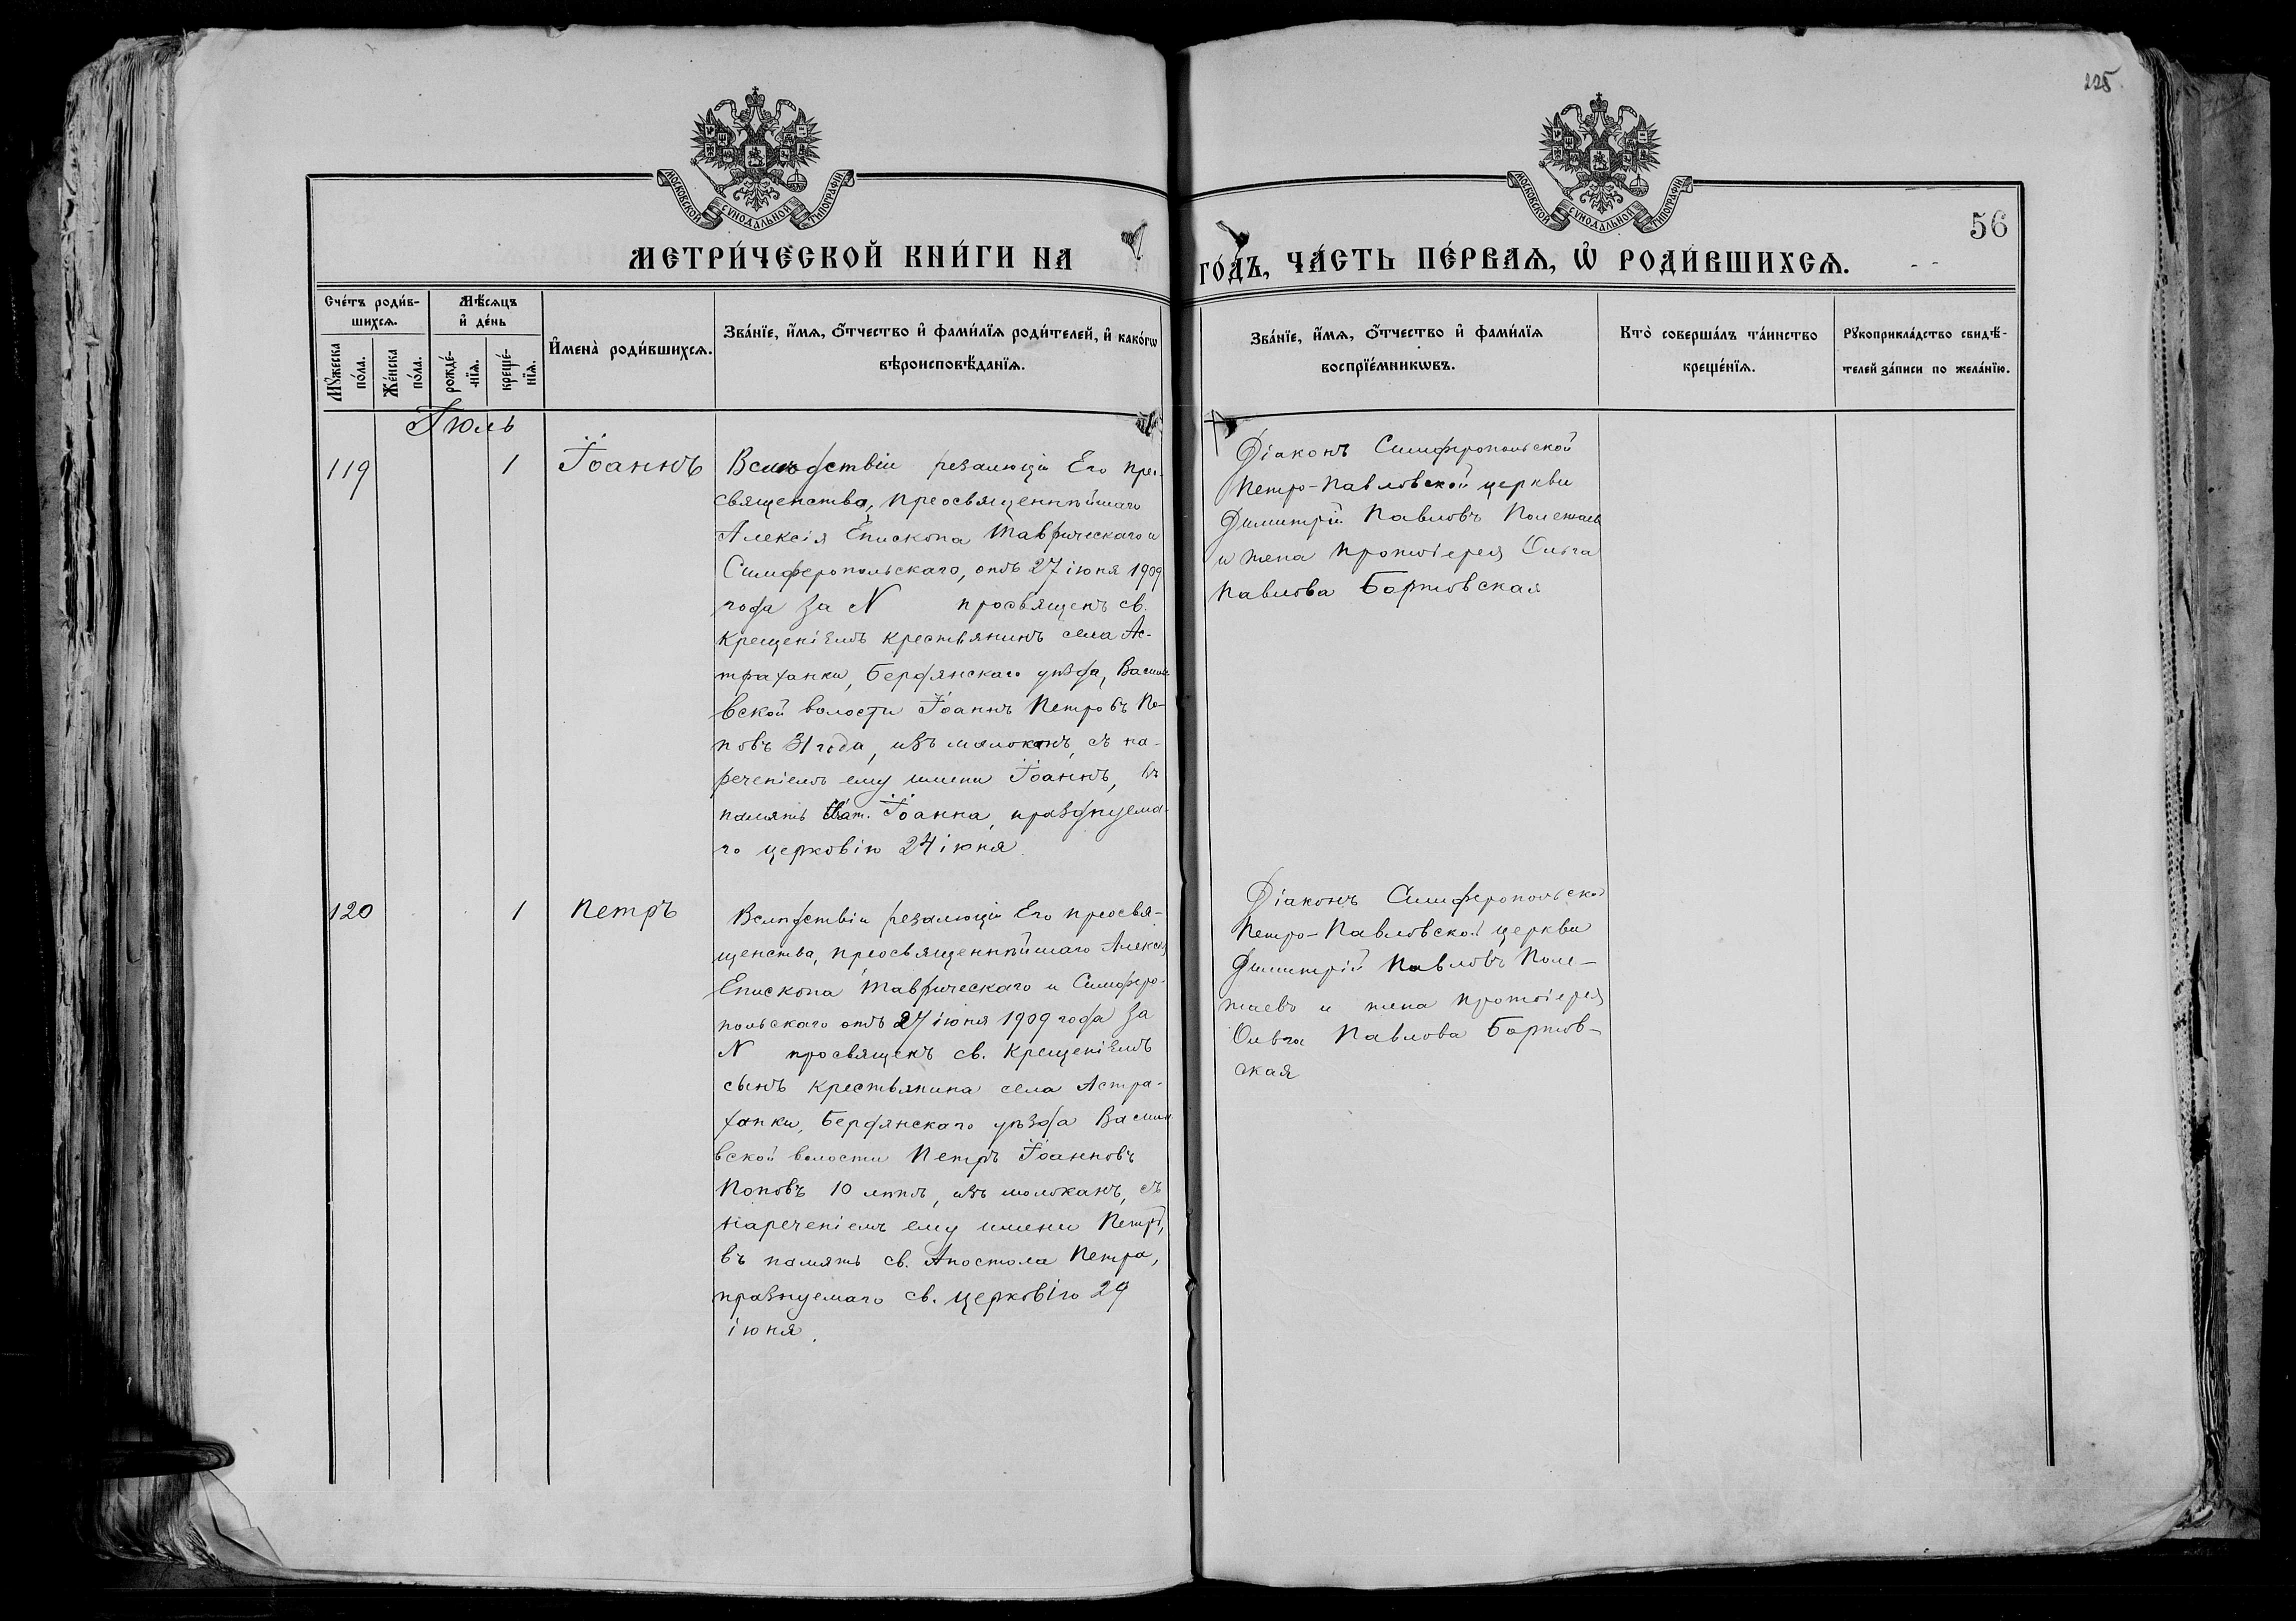 225
МОСКОВСКОЙ СУНОДАЛЬНОЙ ТИПОГРАФІИ
МОСКОВСКОЙ СУНОДАЛЬНОЙ ТИПОГРАФІИ
56
МЕТРИ́ЧЕСКОЙ КНИ́ГИ НА
ГО́ДЪ, ЧА́СТЬ ПЕ́РВАѦ, Ѡ҆ РОДИ́ВШИХСѦ.
Сче́тъ роди́в-
шихсѧ.
Мѣ́сѧцъ
и҆ де́нь
Мꙋ́жеска
по́ла.
Же́нска
по́ла.
рожде́-
нїѧ.
креще́-
нїѧ.
И҆мена̀ роди́вшихсѧ.
Зва́нїе, и҆́мѧ, ѻ҆́тчество и҆ фами́лїѧ роди́телей, и҆ како́гѡ
вѣроисповѣ́данїѧ.
Зва́нїе, и҆́мѧ, ѻ҆́тчество и҆ фами́лїѧ
воспрїе́мникѡвъ.
Кто̀ соверша́лъ та́инство
креще́нїѧ.
Рꙋкоприкла́дство свидѣ́-
телей за́писи по жела́нїю.
Іюль
119
1
Іоаннъ
Вслѣдствіи резалюціи Его прео-
священства, преосвященнѣйшаго
Алексія Епископа Таврическаго и
Симферопольскаго, отъ 27 іюня 1909
года за N просвященъ св.
крещеніемъ крестьянинъ села Ас-
траханки, Бердянскаго уѣзда, Василь
вской волости Іоаннъ Петровъ По-
повъ 31 года, изъ малоканъ, съ на-
реченіемъ ему имени Іоаннъ, въ
память Іоанна, празднуема-
го церковію 24 іюня
Діаконъ Симферопольской
Петро-Павловской церкви
Димитрій Павловъ Полежаевъ
и жена протоіерея Ольга
Павлова Бортовская
120
1
Петръ
Вслѣдствіи резалюціи Его преосвя-
щенства, преосвященнѣйшаго Алексія
Епископа Таврическаго и Симферо-
польскаго отъ 27 іюня 1909 года за
N просвященъ св. крещеніемъ
сынъ крестьянина села Астра-
ханки, Бердянскаго уѣзда Василь
вской волости Петръ Іоанновъ
Поповъ 10 лѣтъ, изъ молоканъ, съ
нареченіемъ ему имени Петръ,
въ память св. Апостола Петра,
празнуемаго св. церковію 29
іюня.
Діаконъ Симферопольской
Петро-Павловской церкви
Димитрій Павловъ Поле-
жаевъ и жена протоіерея
Ольга Павлова Бортов-
ская